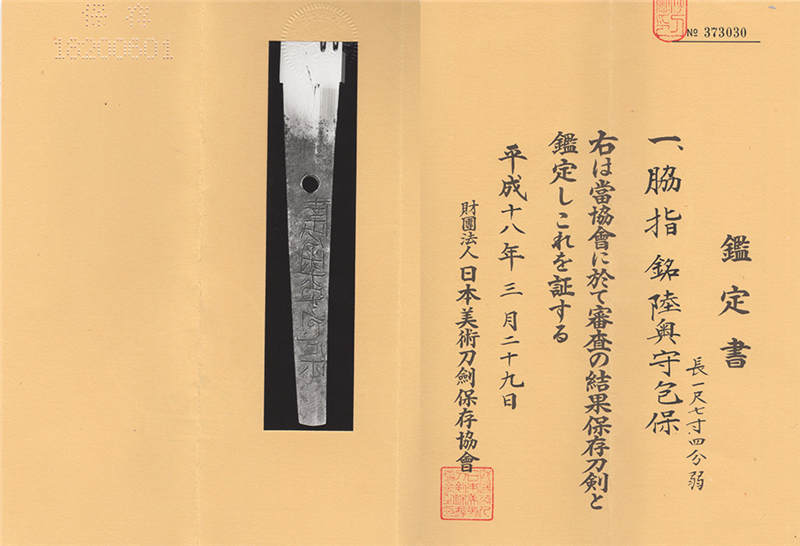 № 373030
鑑定書
一、脇指 銘陸奥守包保
長一尺七寸四分弱
右は當協會に於て審査の結果保存刀剣と
鑑定しこれを証する
平成十八年三月二十九日
財團法人 日本美術刀劍保存協會